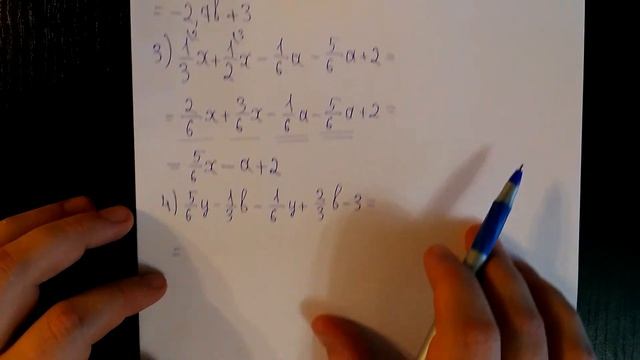 = -2,4b+3
3) 1/3 x + 1/2 x - 1/6 a - 5/6 a + 2 =
= 2/6 x + 3/6 x - 1/6 a - 5/6 a + 2 =
= 5/6 x - a + 2
4) 5/6 y - 1/3 b - 1/6 y + 2/3 b - 3 =
=